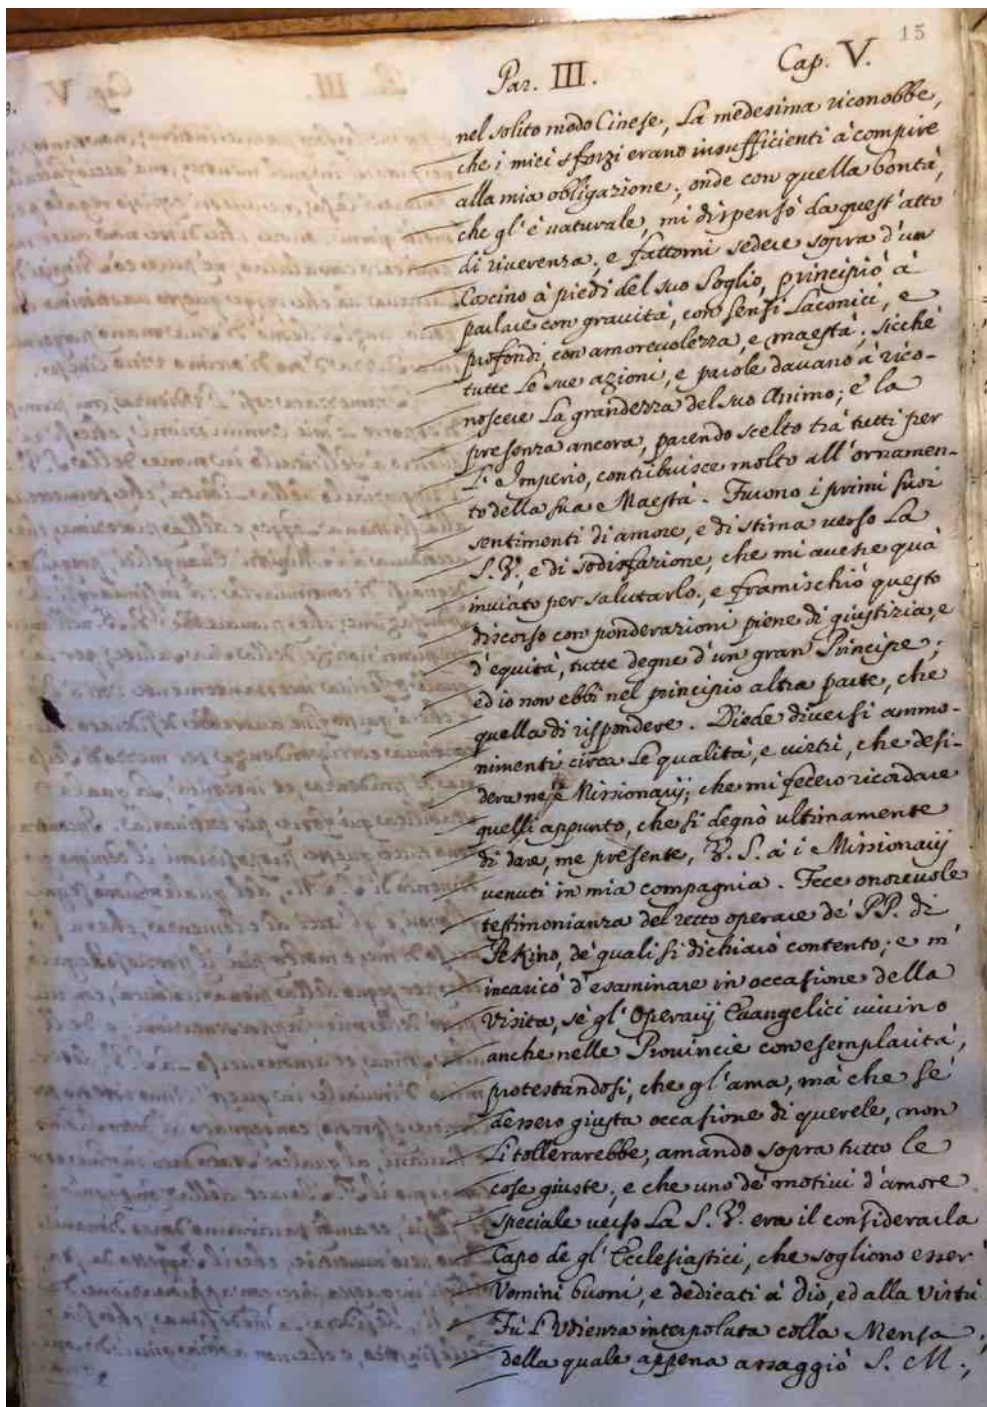 15
Par. III. Cap. V.
nel solito modo Cinese, La medesima riconobbe,
che i miei sforzi erano insufficienti à compire
alla mia obligazione; onde con quella bontà,
che gl'è naturale, mi dispensò da quest'atto
di riverenza; e fattomi sedere sopra d'un
Coscino à piedi del suo Soglio, principiò à
parlare con gravità, con sensi Laconici, e
profondi, con amorevolezza, e maestà; sicchè
tutte Le sue azioni, e parole davano à rico-
noscere La grandezza del suo Animo; e la
presenza ancora, parendo scelto trà tutti per
L'Imperio, contribuisce molto all'ornamen-
to della sua Maestà. Furono i primi suoi
sentimenti di amore, e di stima verso La
S. V., e di sodisfazione, che mi avesse quà
inviato per salutarlo; e framischiò questo
discorso con ponderazioni piene di giustizia, e
d'equità, tutte degne d'un gran Principe;
ed io non ebbi nel principio altra parte, che
quella di rispondere. Diede diversi ammo-
nimenti circa Le qualità, e virtù, che desi-
dera ne Missionarij; che mi fecero ricordare
quelli appunto, che si degnò ultimamente
di dare, me presente, V. S. à i Missionarij
venuti in mia compagnia. Fece onorevole
testimonianza del retto operare de' PP. di
Pekino, de' quali si dichiarò contento; e m'
incaricò d'esaminare in occasione della
Visita, sè gl'Operarij Evangelici vivino
anche nelle Provincie con esemplarità,
protestandosi, che gl'ama, mà che sè
dessero giusta occasione di querele, non
Li tollerarebbe, amando sopra tutto le
cose giuste; e che uno de' motivi d'amore
speciale verso La S. V. era il considerarla
Capo de gl'Ecclesiastici, che sogliono esser
Uomini buoni, e dedicati à Dio, ed alla virtù
Fù L'Udienza interpolata colla Mensa,
della quale appena assaggiò S. M.;